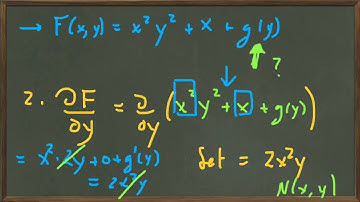 → F(x,y) = x² y² + x + g(y)
?
2. ∂F/∂y = ∂/∂y (x² y² + x + g(y))
= x² · 2y + 0 + g'(y) Set = 2x²y
= 2x²y N(x,y)